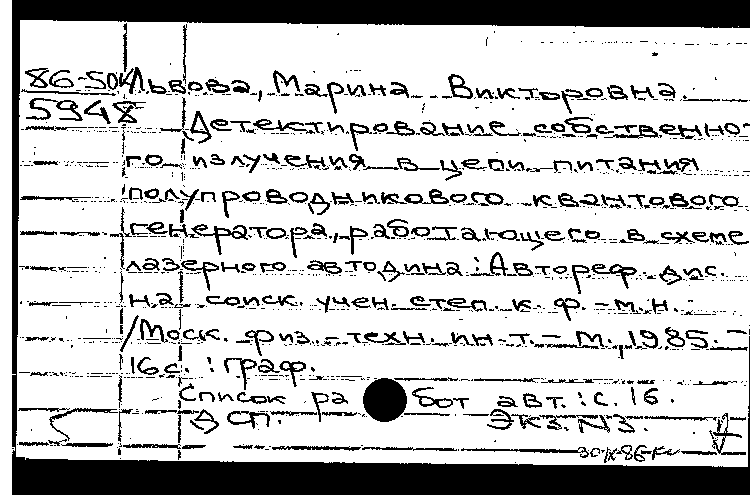 86-50к Львова, Марина Викторовна.
5948
Детектирование собственно-
го излучения в цепи питания
полупроводникового квантового
генератора, работающего в схеме
лазерного автодина : Автореф. дис.
на соиск. учен. степ. к. ф. - м. н.
/Моск. физ. - техн. ин-т. - М., 1985. -
16 с. : граф.
Список работ авт. : с. 16.
ДСП. Экз. N3.